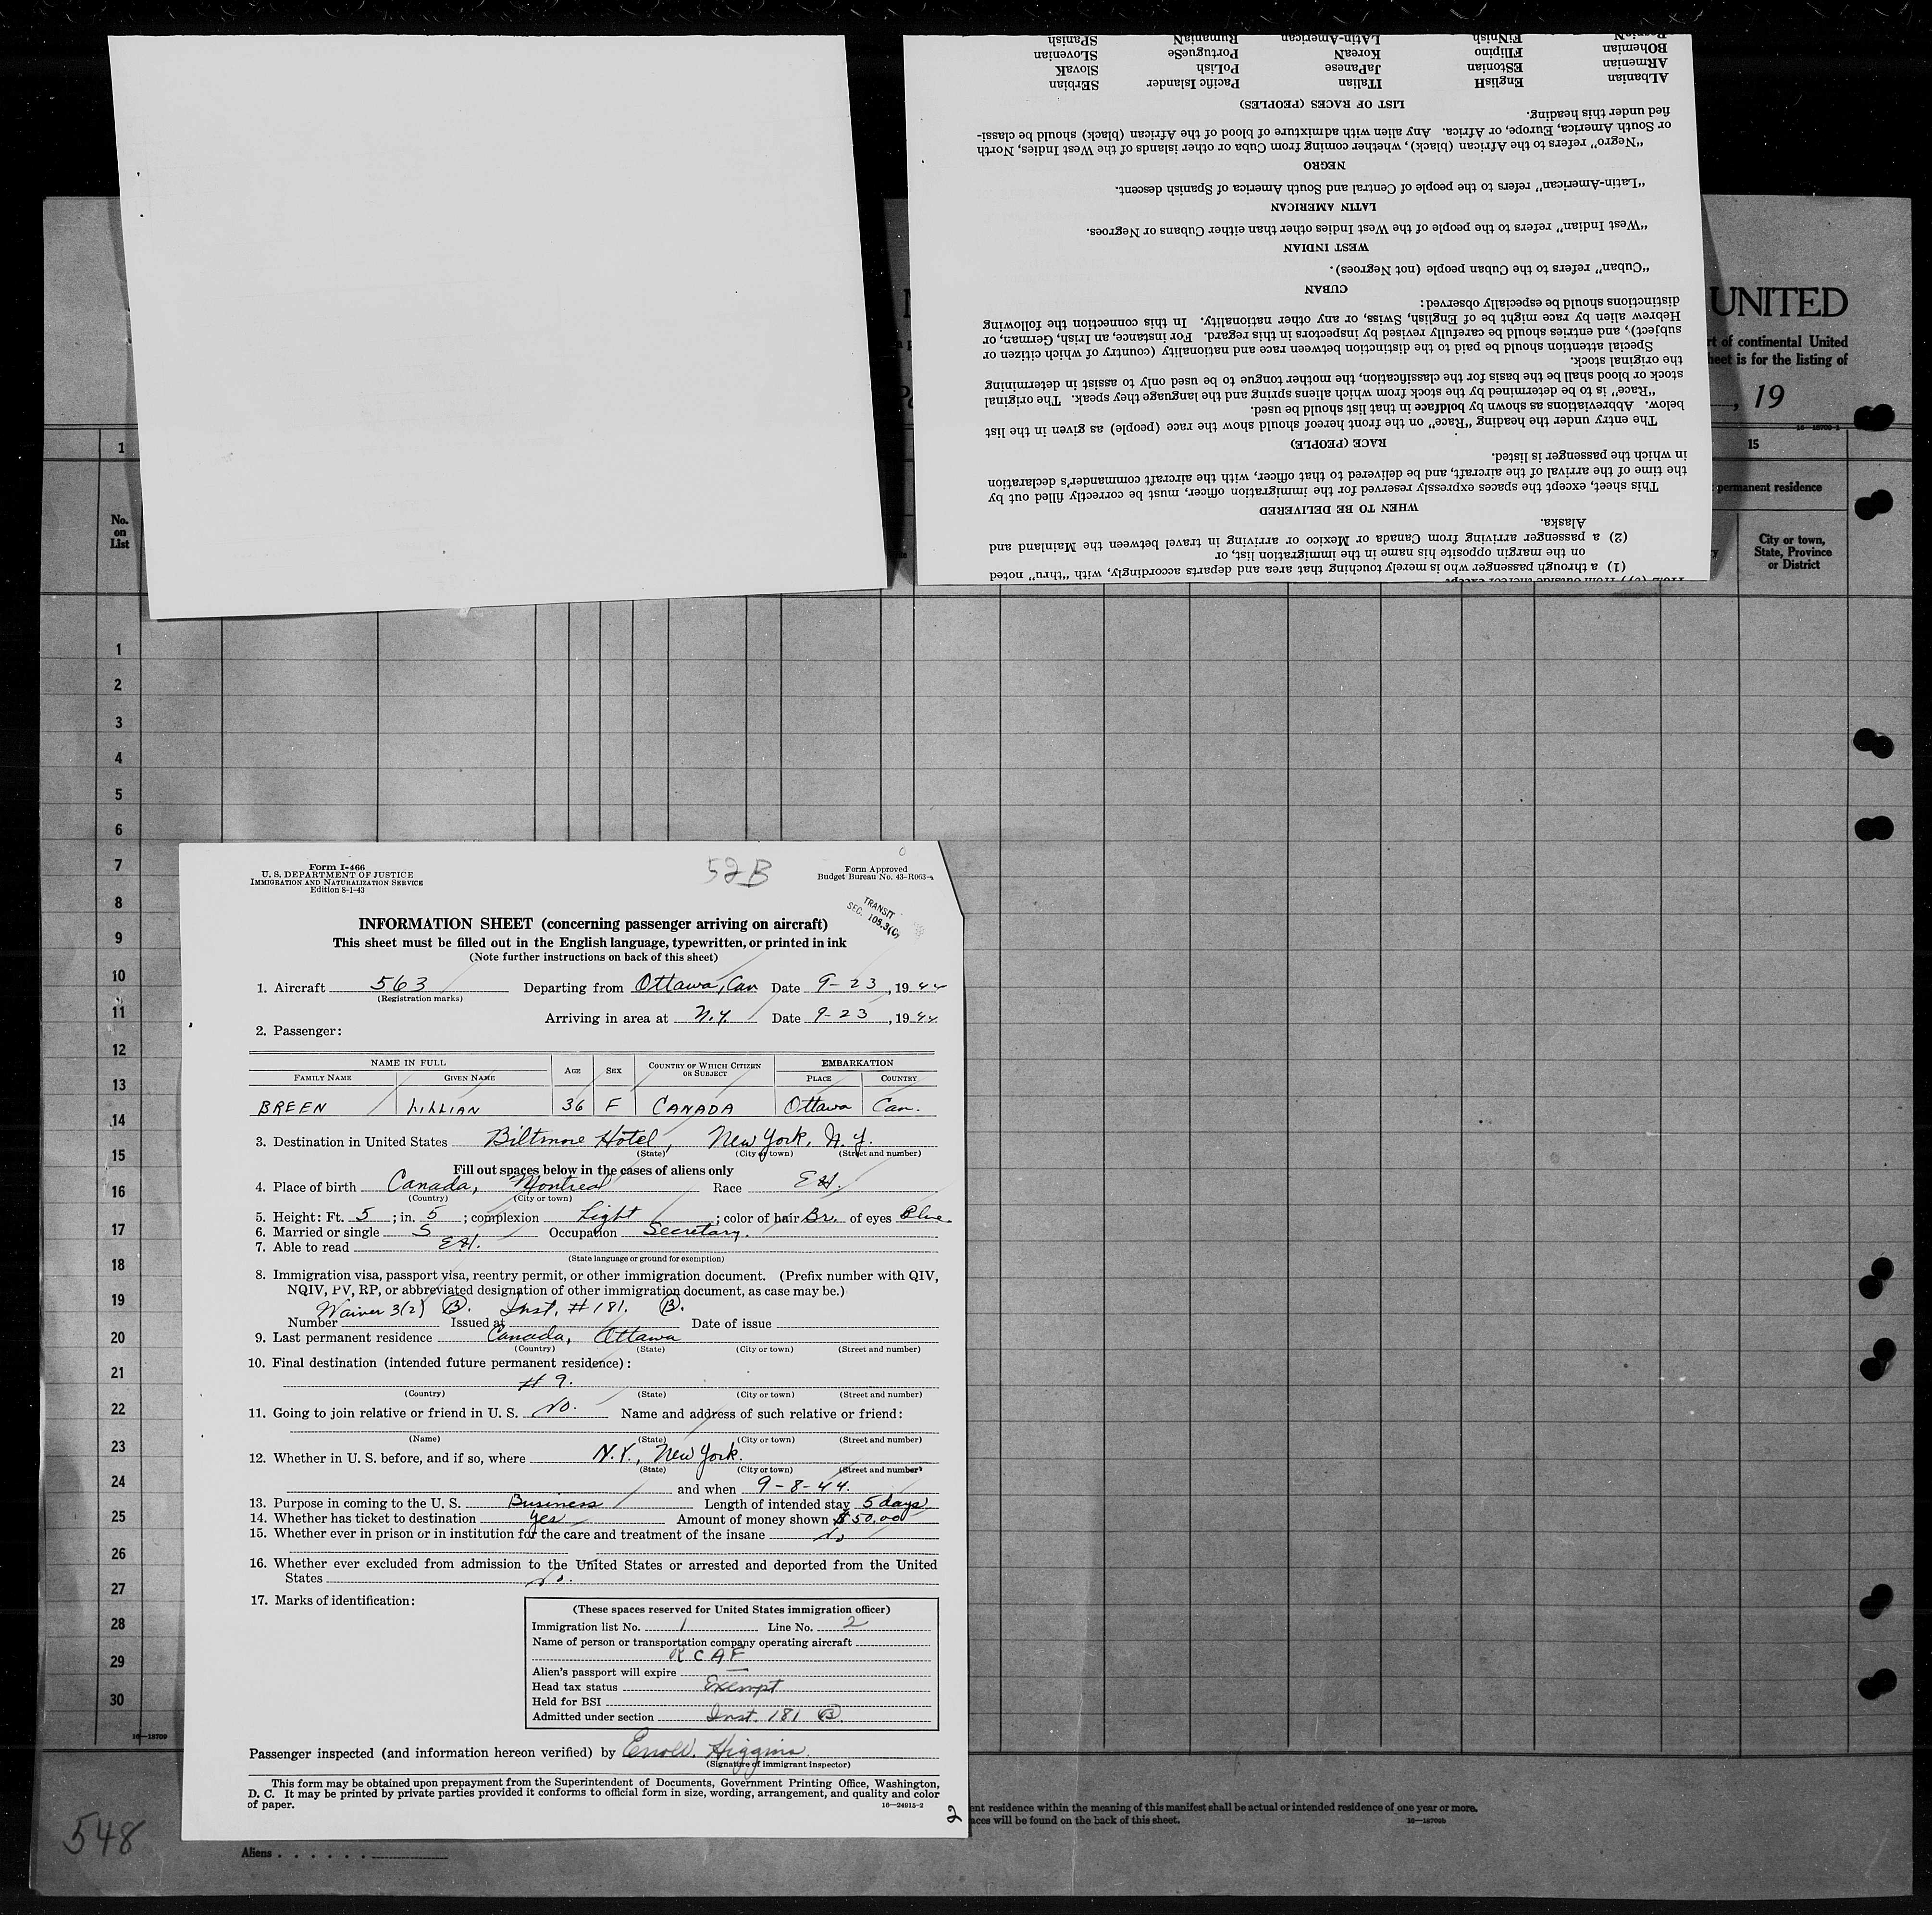 SPanish RumaniaN LAtin-American FINnish
SLOvenian PortugueSe KoreaN FIlipino BOhemian
SlovaK PoLish JaPanese EStonian ARmenian
SErbian Pacific Islander ITalian EnglisH ALbanian
LIST OF RACES (PEOPLES)
fied under this heading.
or South America, Europe, or Africa. Any alien with admixture of blood of the African (black) should be classi-
"Negro" refers to the African (black), whether coming from Cuba or other islands of the West Indies, North
NEGRO
"Latin-American" refers to the people of Central and South America of Spanish descent.
LATIN AMERICAN
"West Indian" refers to the people of the West Indies other than either Cubans or Negroes.
WEST INDIAN
"Cuban" refers to the Cuban people (not Negroes).
CUBAN
distinctions should be especially observed:
Hebrew alien by race might be of English, Swiss, or any other nationality. In this connection the following
subject), and entries should be carefully revised by inspectors in this regard. For instance, an Irish, German, or
Special attention should be paid to the distinction between race and nationality (country of which citizen or
the original stock.
stock or blood shall be the basis for the classification, the mother tongue to be used only to assist in determining
"Race" is to be determined by the stock from which aliens spring and the language they speak. The original
below. Abbreviations as shown by boldface in that list should be used.
The entry under the heading "Race" on the front hereof should show the race (people) as given in the list
RACE (PEOPLE)
in which the passenger is listed.
the time of the arrival of the aircraft, and be delivered to that officer, with the aircraft commander's declaration
This sheet, except the spaces expressly reserved for the immigration officer, must be correctly filled out by
WHEN TO BE DELIVERED
Alaska.
(2) a passenger arriving from Canada or Mexico or arriving in travel between the Mainland and
on the margin opposite his name in the immigration list, or
(1) a through passenger who is merely touching that area and departs accordingly, with "thru" noted
UNITED
rt of continental United
heet is for the listing of
, 19
16—18709-1
1 15
permanent residence
No. on List
City or town, State, Province or District
1
2
3
4
5
6
7
8
9
10
11
12
13
14
15
16
17
18
19
20
21
22
23
24
25
26
27
28
29
30
16—18709
Form I-466
U. S. DEPARTMENT OF JUSTICE
IMMIGRATION AND NATURALIZATION SERVICE
Edition 8-1-43
52B
Form Approved
Budget Bureau No. 43-R063-
TRANSIT
SEC. 108.3(C)
INFORMATION SHEET (concerning passenger arriving on aircraft)
This sheet must be filled out in the English language, typewritten, or printed in ink
(Note further instructions on back of this sheet)
1. Aircraft 563 Departing from Ottawa, Can Date 9-23, 1944
(Registration marks)
Arriving in area at N.Y. Date 9-23, 1944
2. Passenger:
NAME IN FULL AGE SEX COUNTRY OF WHICH CITIZEN OR SUBJECT EMBARKATION
FAMILY NAME GIVEN NAME PLACE COUNTRY
BREEN LILLIAN 36 F CANADA Ottawa Can.
3. Destination in United States Biltmore Hotel, New York, N.Y.
(State) (City or town) (Street and number)
Fill out spaces below in the cases of aliens only
4. Place of birth Canada, Montreal Race EH.
(Country) (City or town)
5. Height: Ft. 5; in. 5; complexion Light; color of hair Br. of eyes Blue.
6. Married or single S Occupation Secretary.
7. Able to read EH.
(State language or ground for exemption)
8. Immigration visa, passport visa, reentry permit, or other immigration document. (Prefix number with QIV,
NQIV, PV, RP, or abbreviated designation of other immigration document, as case may be.)
Waiver 3(2) B. Inst. # 181. B.
Number Issued at Date of issue
9. Last permanent residence Canada, Ottawa
(Country) (State) (City or town) (Street and number)
10. Final destination (intended future permanent residence):
# 9.
(Country) (State) (City or town) (Street and number)
11. Going to join relative or friend in U. S. No. Name and address of such relative or friend:
(Name) (State) (City or town) (Street and number)
12. Whether in U. S. before, and if so, where N.Y., New York.
(State) (City or town) (Street and number)
and when 9-8-44.
13. Purpose in coming to the U. S. Business Length of intended stay 5 days
14. Whether has ticket to destination Yes Amount of money shown $50.00
15. Whether ever in prison or in institution for the care and treatment of the insane No
16. Whether ever excluded from admission to the United States or arrested and deported from the United
States No.
17. Marks of identification:
(These spaces reserved for United States immigration officer)
Immigration list No. 1 Line No. 2
Name of person or transportation company operating aircraft
RCAF
Alien's passport will expire —
Head tax status Exempt
Held for BSI
Admitted under section Inst. 181 B
Passenger inspected (and information hereon verified) by Higgins.
(Signature of immigrant inspector)
This form may be obtained upon prepayment from the Superintendent of Documents, Government Printing Office, Washington,
D. C. It may be printed by private parties provided it conforms to official form in size, wording, arrangement, and quality and color
of paper.
16—24915-2
2
ent residence within the meaning of this manifest shall be actual or intended residence of one year or more.
aces will be found on the back of this sheet.
548
Aliens